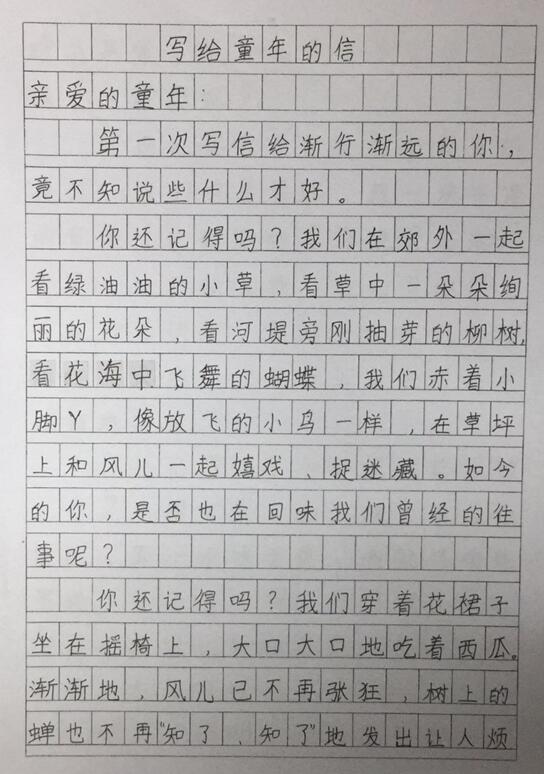 写给童年的信
亲爱的童年：
第一次写信给渐行渐远的你，
竟不知说些什么才好。
你还记得吗？我们在郊外一起
看绿油油的小草，看草中一朵朵绚
丽的花朵，看河堤旁刚抽芽的柳树，
看花海中飞舞的蝴蝶，我们赤着小
脚丫，像放飞的小鸟一样，在草坪
上和风儿一起嬉戏、捉迷藏。如今
的你，是否也在回味我们曾经的往
事呢？
你还记得吗？我们穿着花裙子
坐在摇椅上，大口大口地吃着西瓜。
渐渐地，风儿已不再张狂，树上的
蝉也不再“知了、知了”地发出让人烦